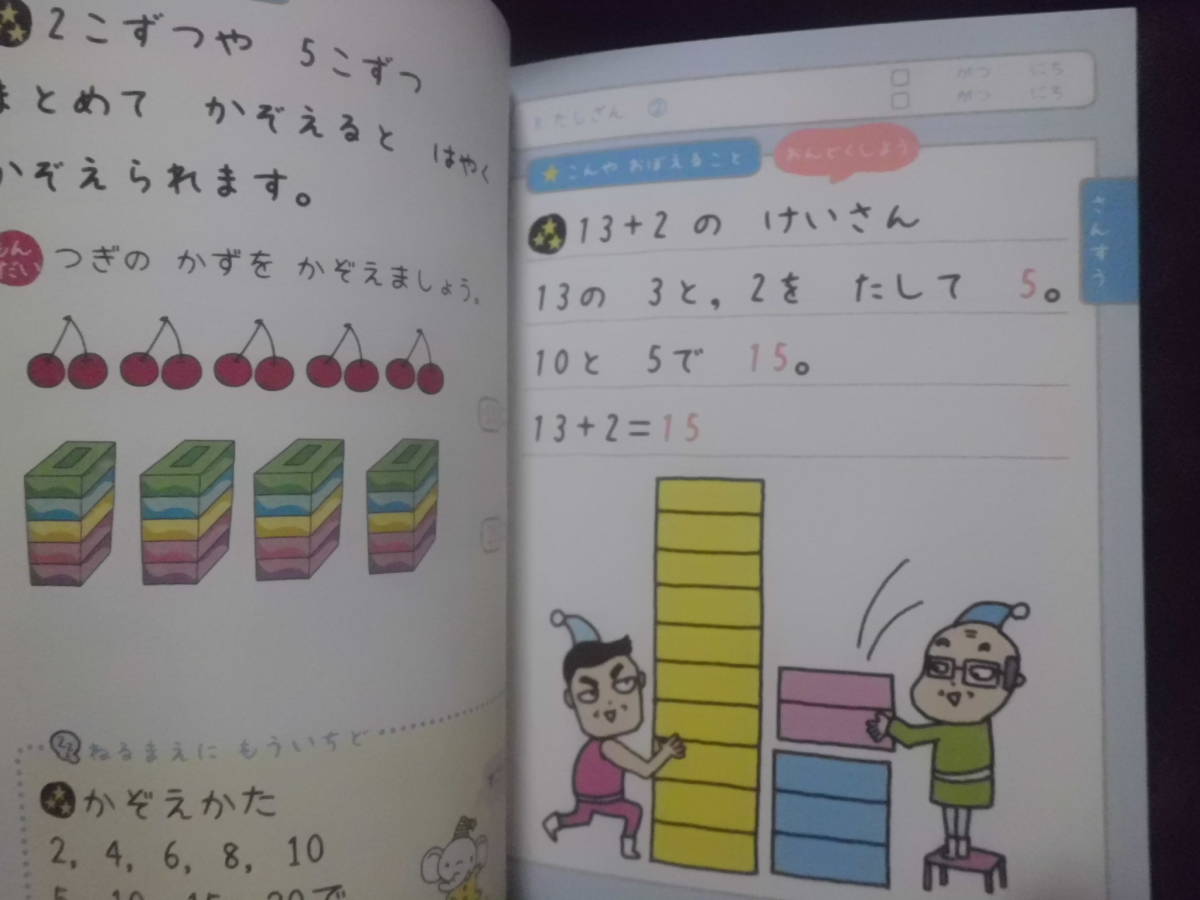 2こずつや 5こずつ
まとめて かぞえると はやく
かぞえられます。
もんだい
つぎの かずを かぞえましょう。
ねるまえに もういちど
かぞえかた
2, 4, 6, 8, 10
5, 10, 15, 20で
がつ にち
がつ にち
たしざん ②
★こんや おぼえること
おんどくしよう
13+2 の けいさん
13の 3と, 2を たして 5。
10と 5で 15。
13+2=15
さんすう